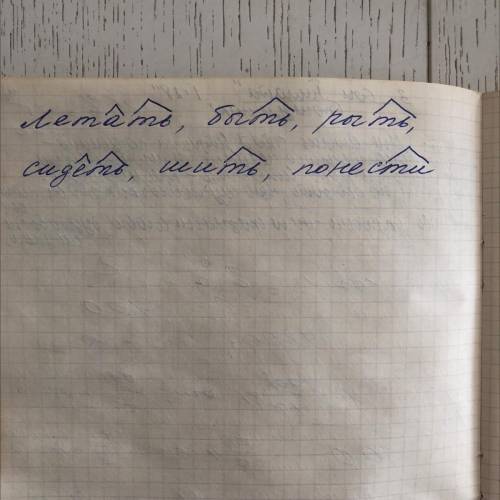 летать, быть, рыть,
сидеть, шить, понести